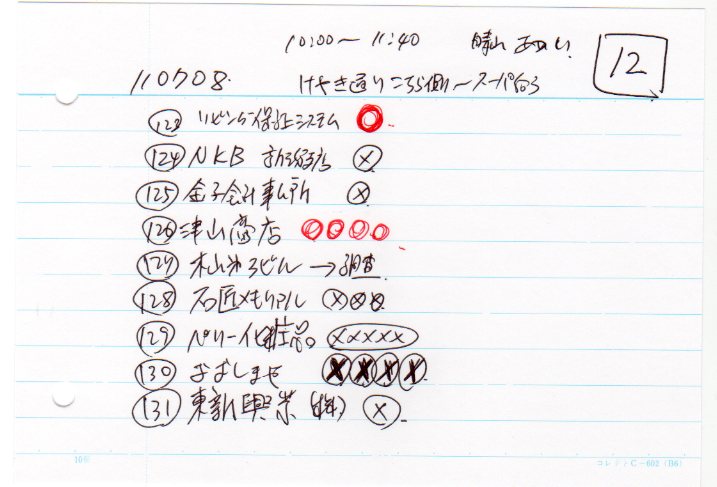 10:00〜11:40 晴山 12
110708. けやき通りこちら側〜スーパー向う
123 リビング保証システム
124 NKB
125 金子会計事ム所
126 津山商店
127 木山第3ビル→調査
128 石匠メモリアル
129 ベリー化粧品
130 おばしませ
131 東新興業(株)
10㎜ コレクトC-602(B6)